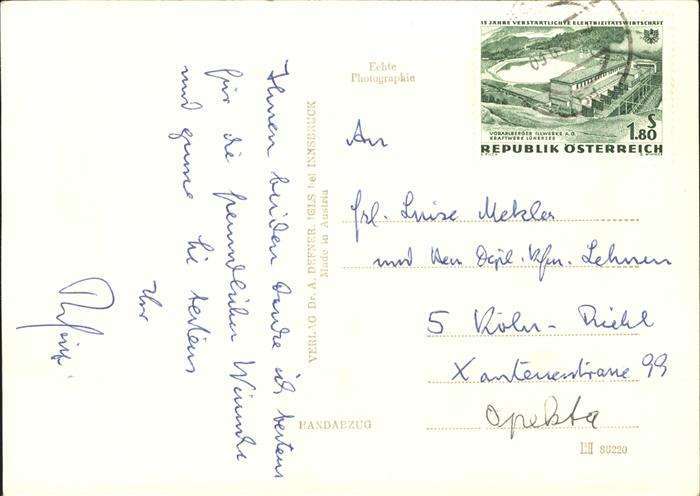 Ihnen beiden danke ich bestens
für die freundlichen Wünsche
und grüsse Sie bestens
Ihr
VERLAG Dr. A. DEFNER, IGLS bei INNSBRUCK
Made in Austria
Echte
Photographie
15 JAHRE VERSTAATLICHTE ELEKTRIZITÄTSWIRTSCHAFT
VORARLBERGER ILLWERKE A.G.
KRAFTWERK LÜNERSEE
S
1.80
REPUBLIK ÖSTERREICH
An
Frl. Luise Mekler
und Herrn Dipl. Kfm. Lehnen
5 Köln-Riehl
Xantenerstrasse 99
Opekta
HANDABZUG
86220